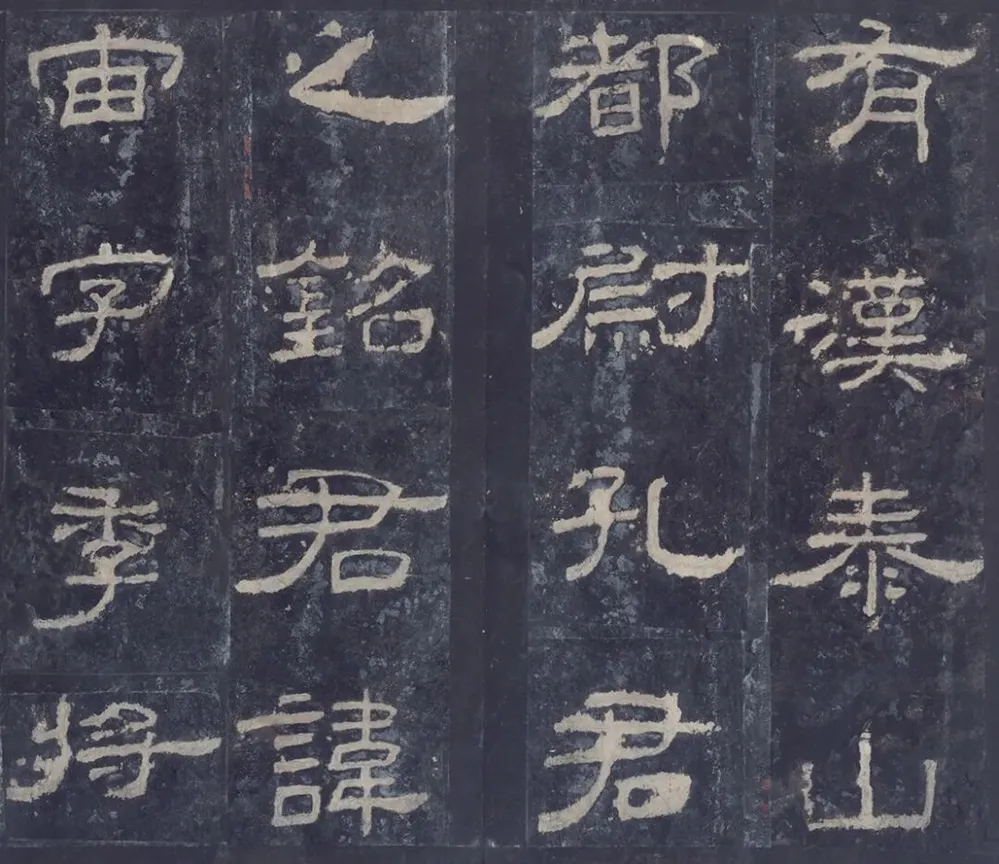 有漢泰山
都尉孔君
之銘君諱
宙字季將